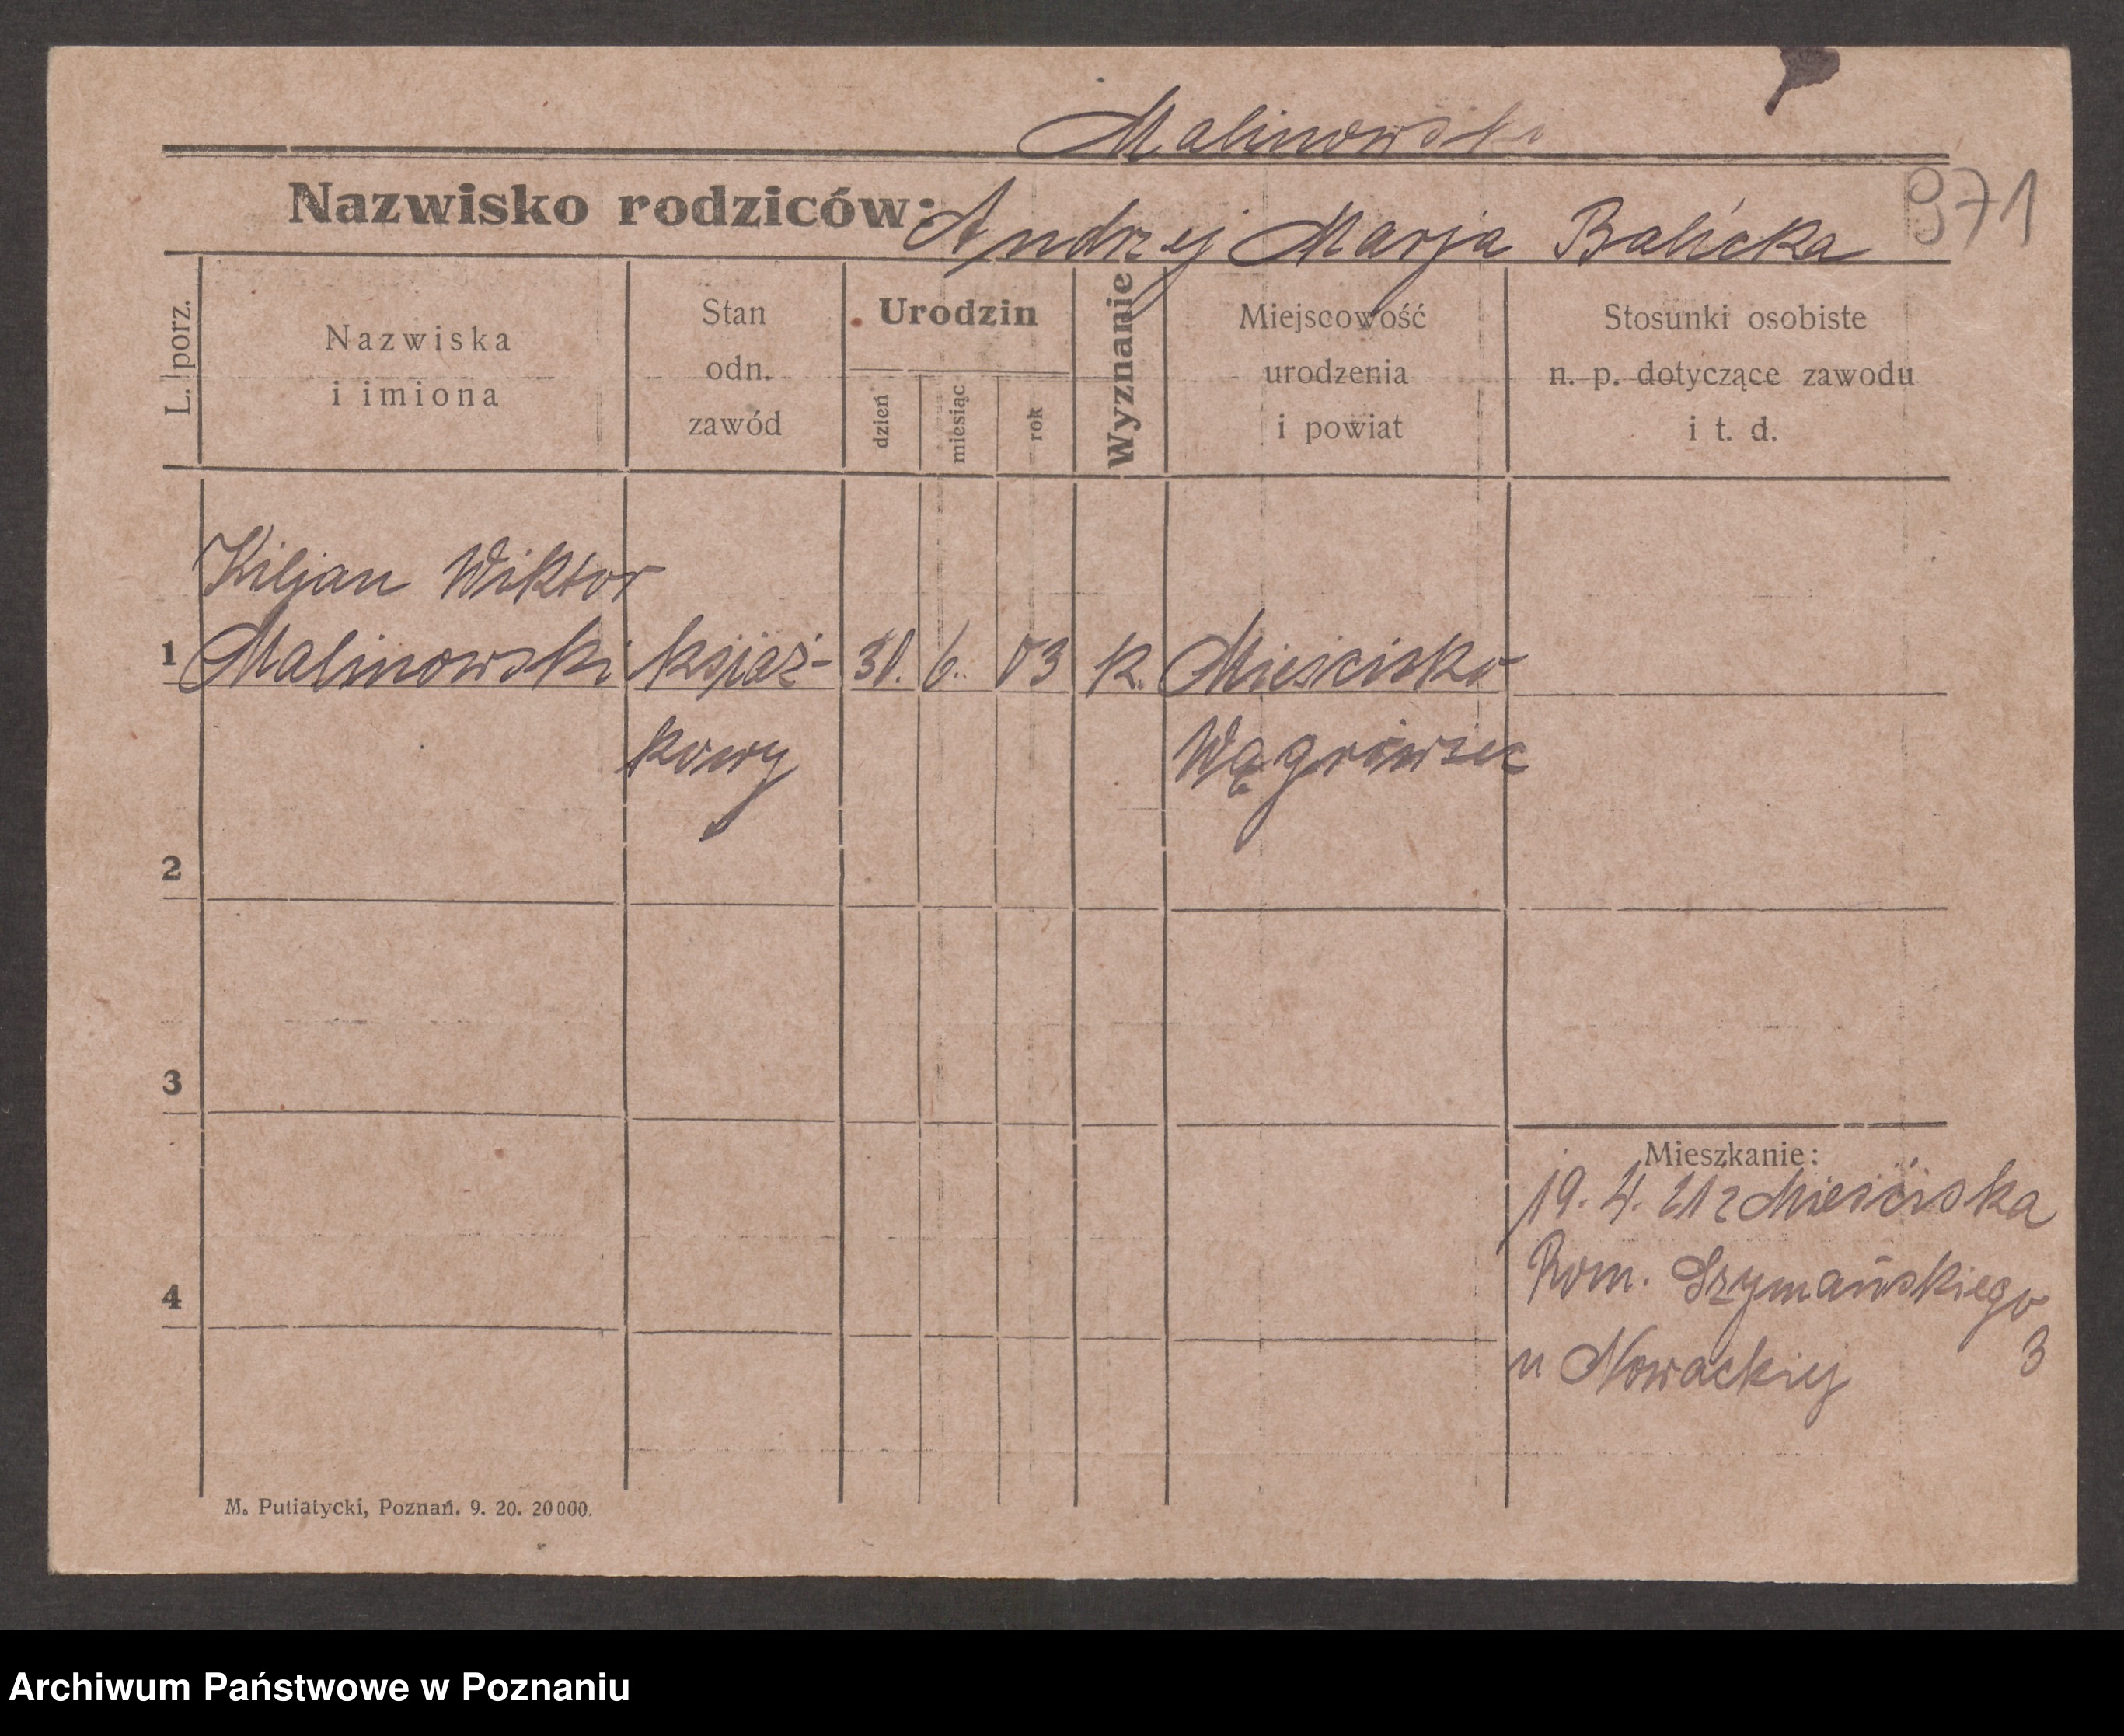 Malinowski
Nazwisko rodziców: Andrzej Marja Balicka
971
L. porz.
Nazwiska
i imiona
Stan
odn.
zawód
Urodzin
dzień
miesiąc
rok
Wyznanie
Miejscowość
urodzenia
i powiat
Stosunki osobiste
n. p. dotyczące zawodu
i t. d.
Kiljan Wiktor
1 Malinowski książ- 30. 6. 03 k. Mieścisko
kowy Wągrówiec
2
3
4
Mieszkanie:
19. 4. 21 z Mieściska
Rom. Szymańskiego
3
u Nowackiej
M. Putiatycki, Poznań. 9. 20. 20000.
Archiwum Państwowe w Poznaniu